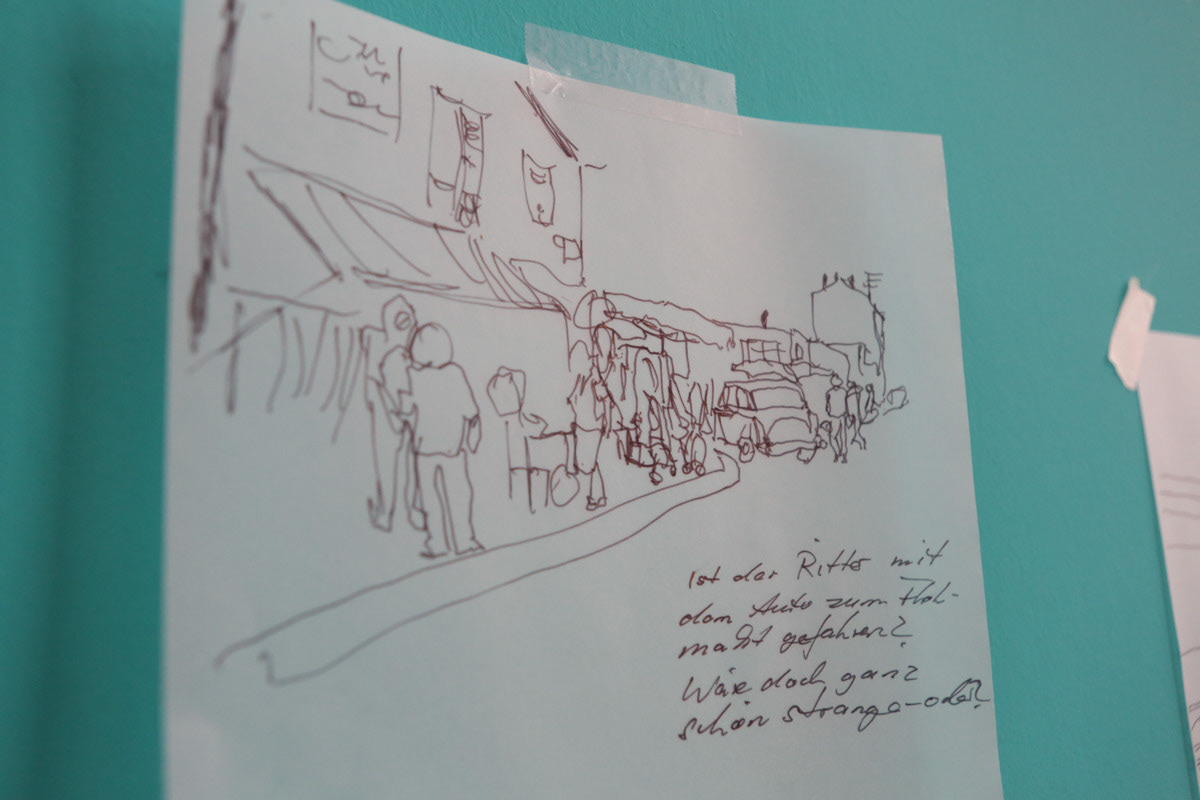 Ist der Ritter mit
dem Auto zum Floh-
markt gefahren?
Wäre doch ganz
schön strange-oder?